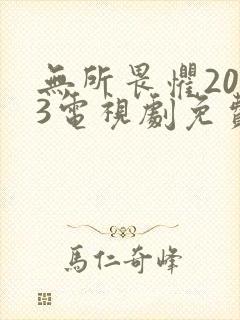 無所畏懼20
3電視劇免費
馬仁奇峰